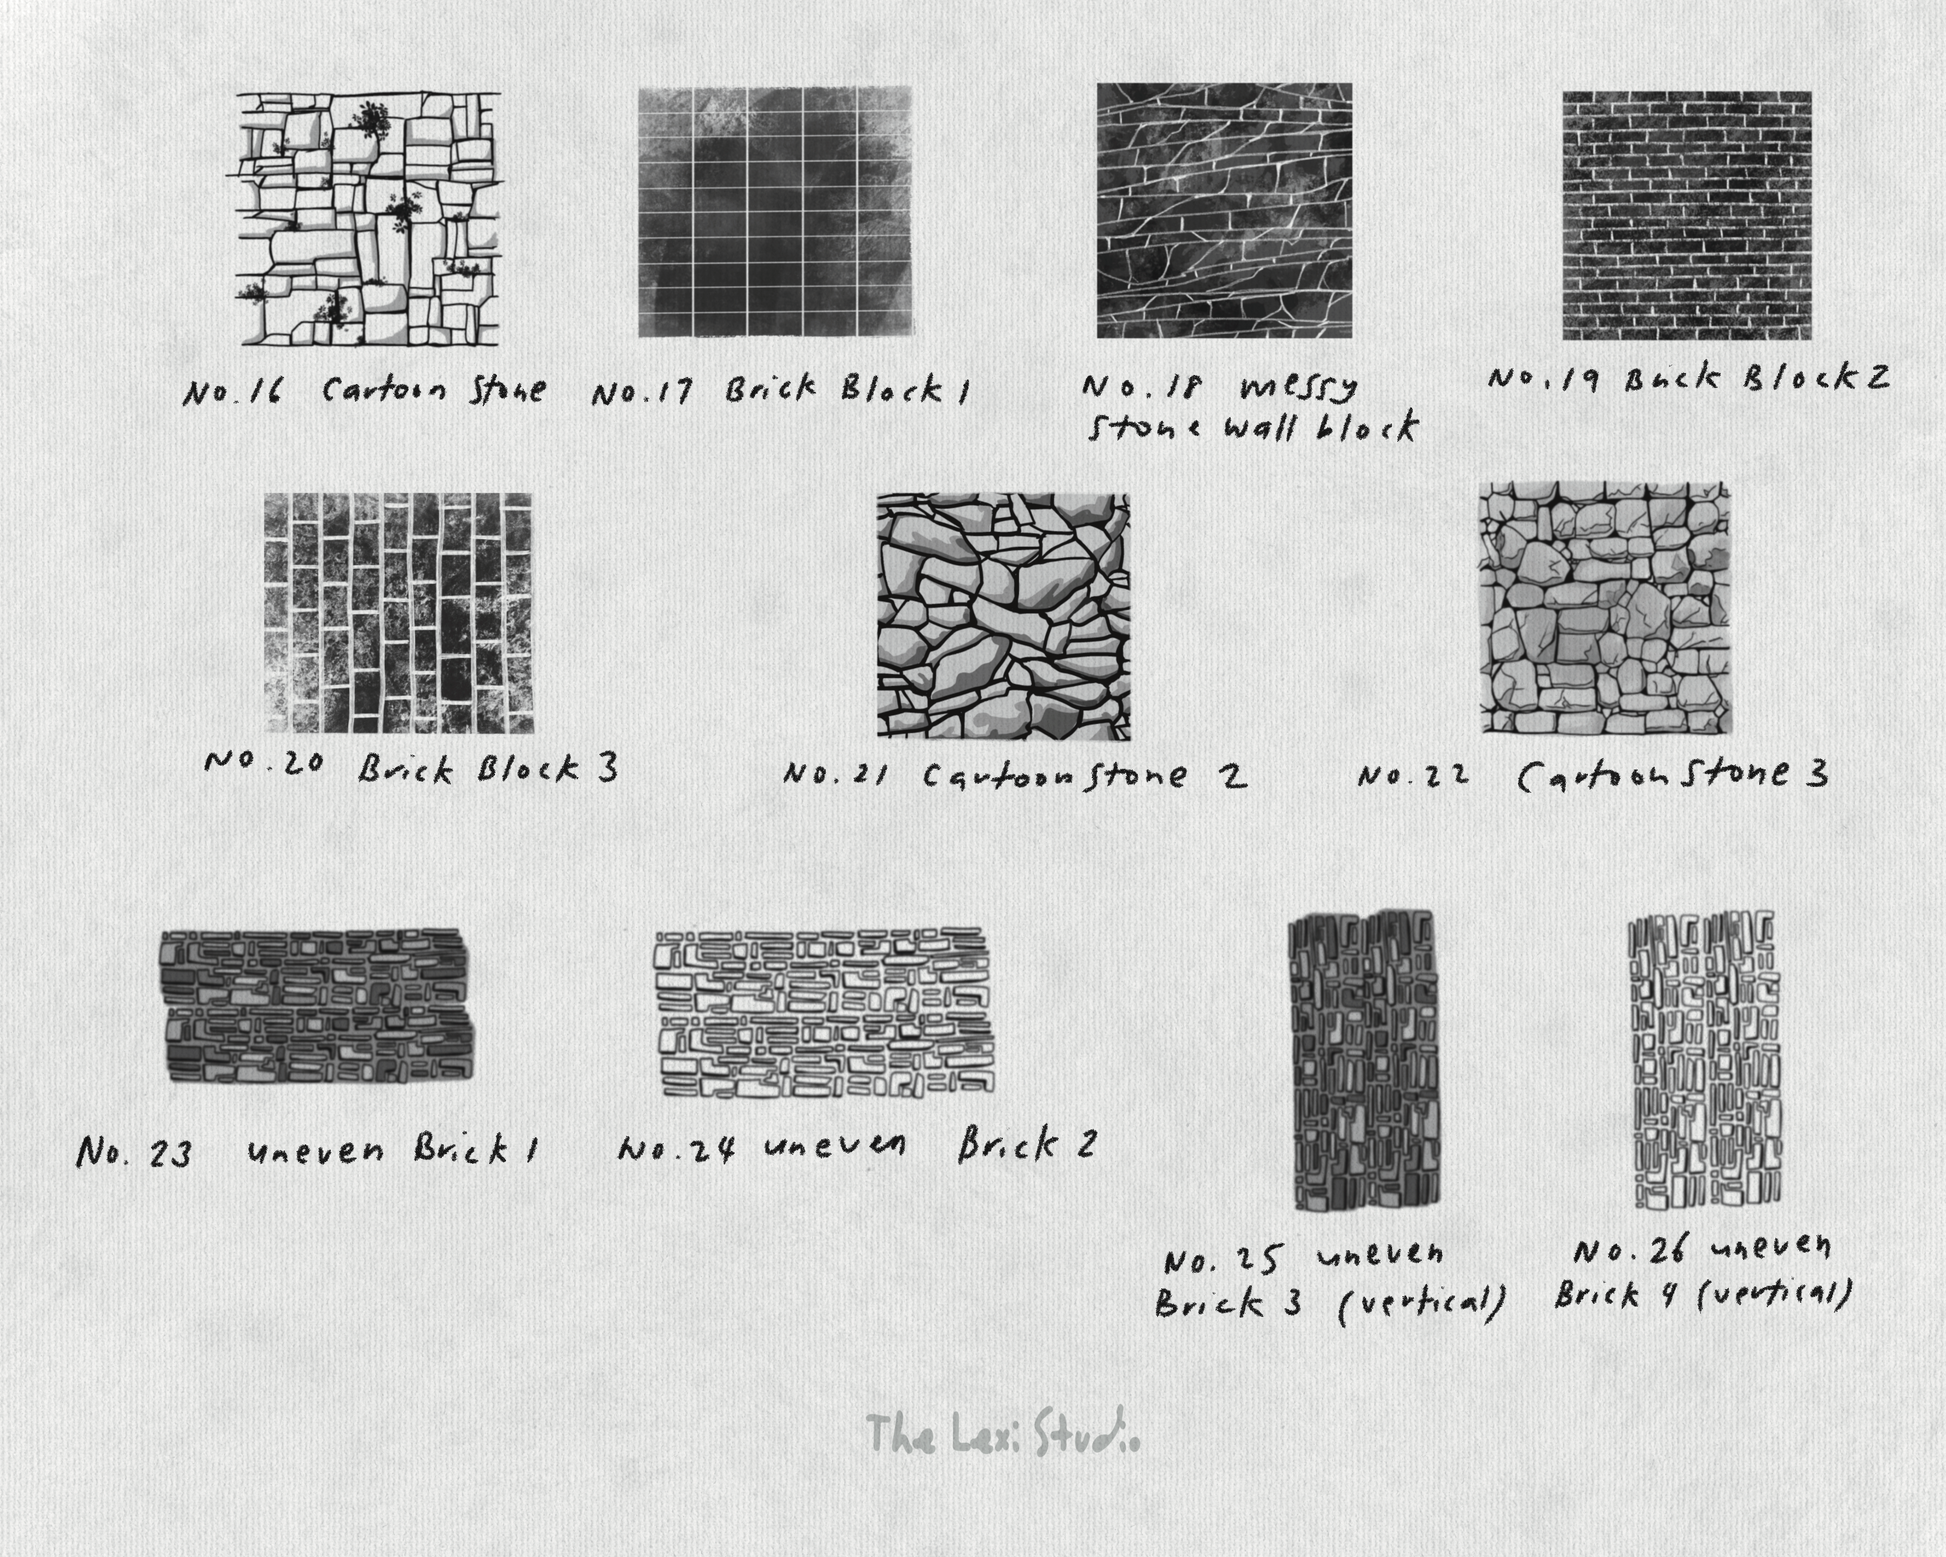 No.16 Cartoon Stone
No.17 Brick Block 1
No.18 messy
stone wall block
No.19 Brick Block 2
No.20 Brick Block 3
No.21 Cartoon Stone 2
No.22 Cartoon Stone 3
No.23 uneven Brick 1
No.24 uneven Brick 2
No.25 uneven
Brick 3 (vertical)
No.26 uneven
Brick 4 (vertical)
The Lexi Studio